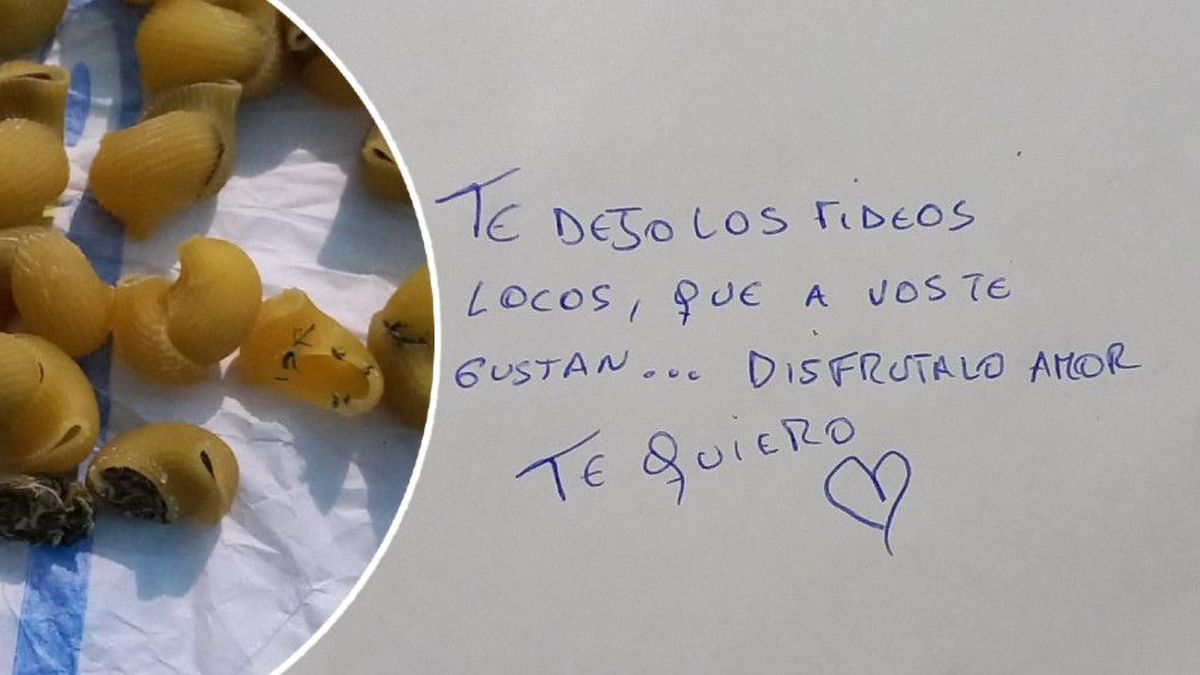 TE DEJO LOS FIDEOS
LOCOS, QUE A VOS TE
GUSTAN... DISFRUTALO AMOR
TE QUIERO